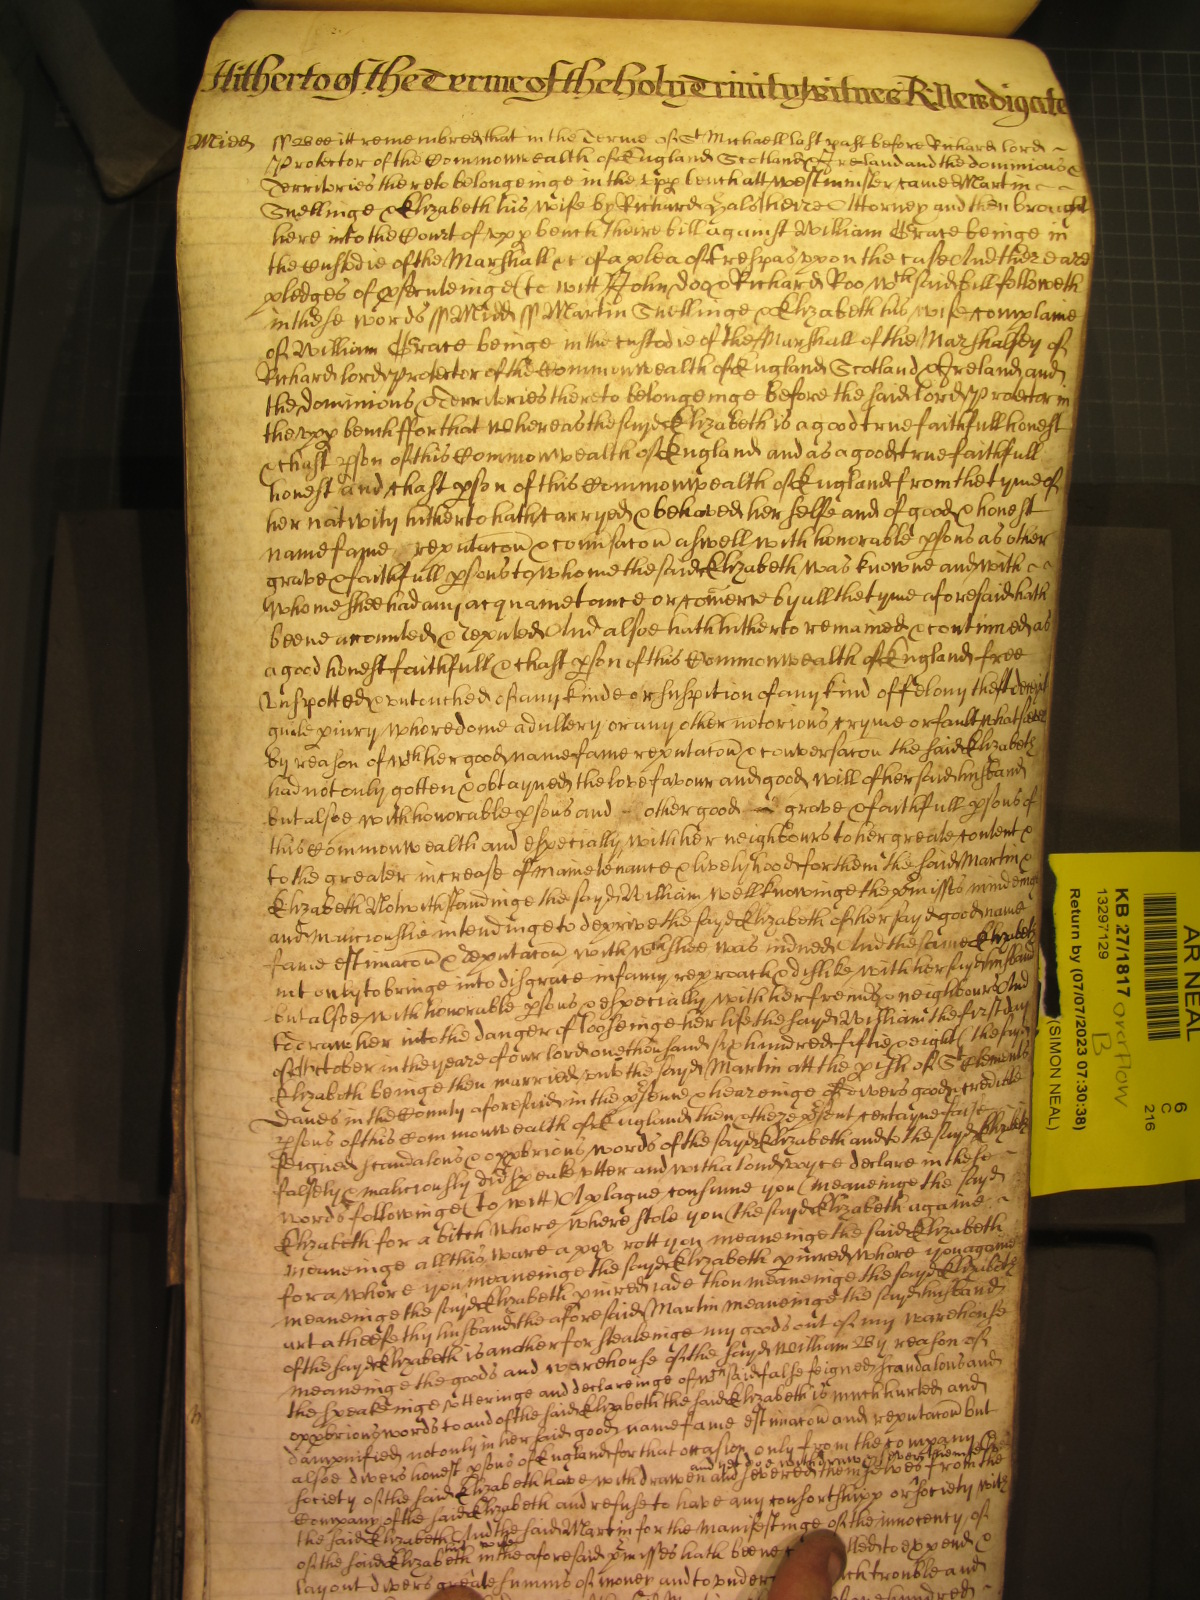 Hitherto of the Terme of the holy Trinity Witnes R Newdigate
Midd ss Bee itt remembred that in the Terme of St Michaell last past before Richard lord
Protector of the Commonwealth of England Scotland & Ireland and the dominions &
Territories thereto belongeinge in the upp bench att Westminster came Martin
Snellinge & Elizabeth his wife by Richard Attorney and then brought
here into the Court of upp bench theire bill against William Grace beinge in
the custodie of the Marshall &c of a plea of Trespas uppon the case And there are
pledges of pseculeinge (to witt) John Doo & Richard Roo wch said bill followeth
in these words ss Midd ss Martin Snellinge & Elizabeth his wife complaine
of William Grace beinge in the custodie of the Marshall of the Marshalsey of
Richard lord Protector of the Commonwealth of England Scotland & Ireland and
the dominions & Territories thereto belongeinge before the said lord Protector in
the upp bench ffor that whereas the sayd Elizabeth is a good true faithfull honest
& chast pson of this Commonwealth of England and as a good true faithfull
honest and chast pson of this Commonwealth of England from the tyme of
her nativity hitherto hath carryed & behaved her selfe and of good & honest
name fame reputacon & convsacon aswell with honorable psons as other
grave & faithfull psons to whome the said Elizabeth was knowne and with
whome shee had any acquainetance or comerce by all the tyme aforesaid hath
beene accounted & reputed And alsoe hath hitherto remained & continued as
a good honest faithfull & chast pson of this Commonwealth of England free
unspotted & untouched of any kinde or suspition of any kind of felony theft deceipt
guile piury whoredome adultery or any other notorious cryme or fault whatsoever
by reason of wch her good name fame reputacon & conversacon the said Elizabeth
had not only gotten & obtayned the love favour and good will of her said husband
but alsoe with honorable psons and other good grave & faithfull psons of
this Commonwealth and especially with her neighbours to her greate content &
to the greater increase of maintenance & livelyhood for them the said Martin &
Elizabeth Notwithstandinge the sayd William well knowinge the pmisses mindeinge
and maliciouslie intendinge to deprive the sayd Elizabeth of her sayd good name
fame estimacon & reputacon with wch shee was indued And the same Elizabeth
not only to bringe into disgrace infamy reproach & dislike with her sayd husband
but alsoe with honorable psons & especially with her freinds & neighbours And
to draw her into the danger of looseinge her life the sayd William the first day
of October in the yeare of our lord one thousand six hundred fiftie & eight (the sayd
Elizabeth beinge then married unto the sayd Martin att the pish of St Clements
Danes in the County aforesaid in the psence & heareinge of divers good & creditble
psons of this Commonwealth of England then & there psent certayne false
feigned scandalous & oppbrious words of the sayd Elizabeth and to the sayd Elizabeth
falsely & maliciously did speake utter and with a loud voyce declare in these
words followinge (to witt) A plague consume you (meaneinge the sayd
Elizabeth for a bitch whore where stole you (the sayd Elizabeth againe
meaneinge all this ware a pox rott you meaneinge the said Elizabeth
for a whore you meaneinge the sayd Elizabeth piured whore you againe
meaneinge the sayd Elizabeth piured jade thou meaneinge the sayd Elizabeth
art a theefe thy husband the aforesaid Martin meaneinge the sayd husband
of the sayd Elizabeth is another for stealeinge my goods out of my warehouse
meaneinge the goods and warehouse of the sayd William By reason of
the speakeinge utteringe and declareinge of wch said false feigned scandalous and
oppbrious words to and of the said Elizabeth the said Elizabeth is much hurted and
dampnified not only in her said good name fame estimacon and reputacon but
alsoe divers honest psons of England for that occasion only from the company &
society of the said Elizabeth have withdrawen and severed themselves from the
and yet doe withdraw & sever themselves
Company of the said Elizabeth and refuse to have any consortshipp or society with
the said Elizabeth And the said Martin for the manifestinge of the innocency of
of the said Elizabeth his wife in the aforesaid pmisses hath beene lled to expend &
lay out divers greate summs of money and to under ch trouble and
hundred
AR NEAL
6
C
216
KB 27/1817 overflow
B
13297129
Return by (07/07/2023 07:30:38)
(SIMON NEAL)